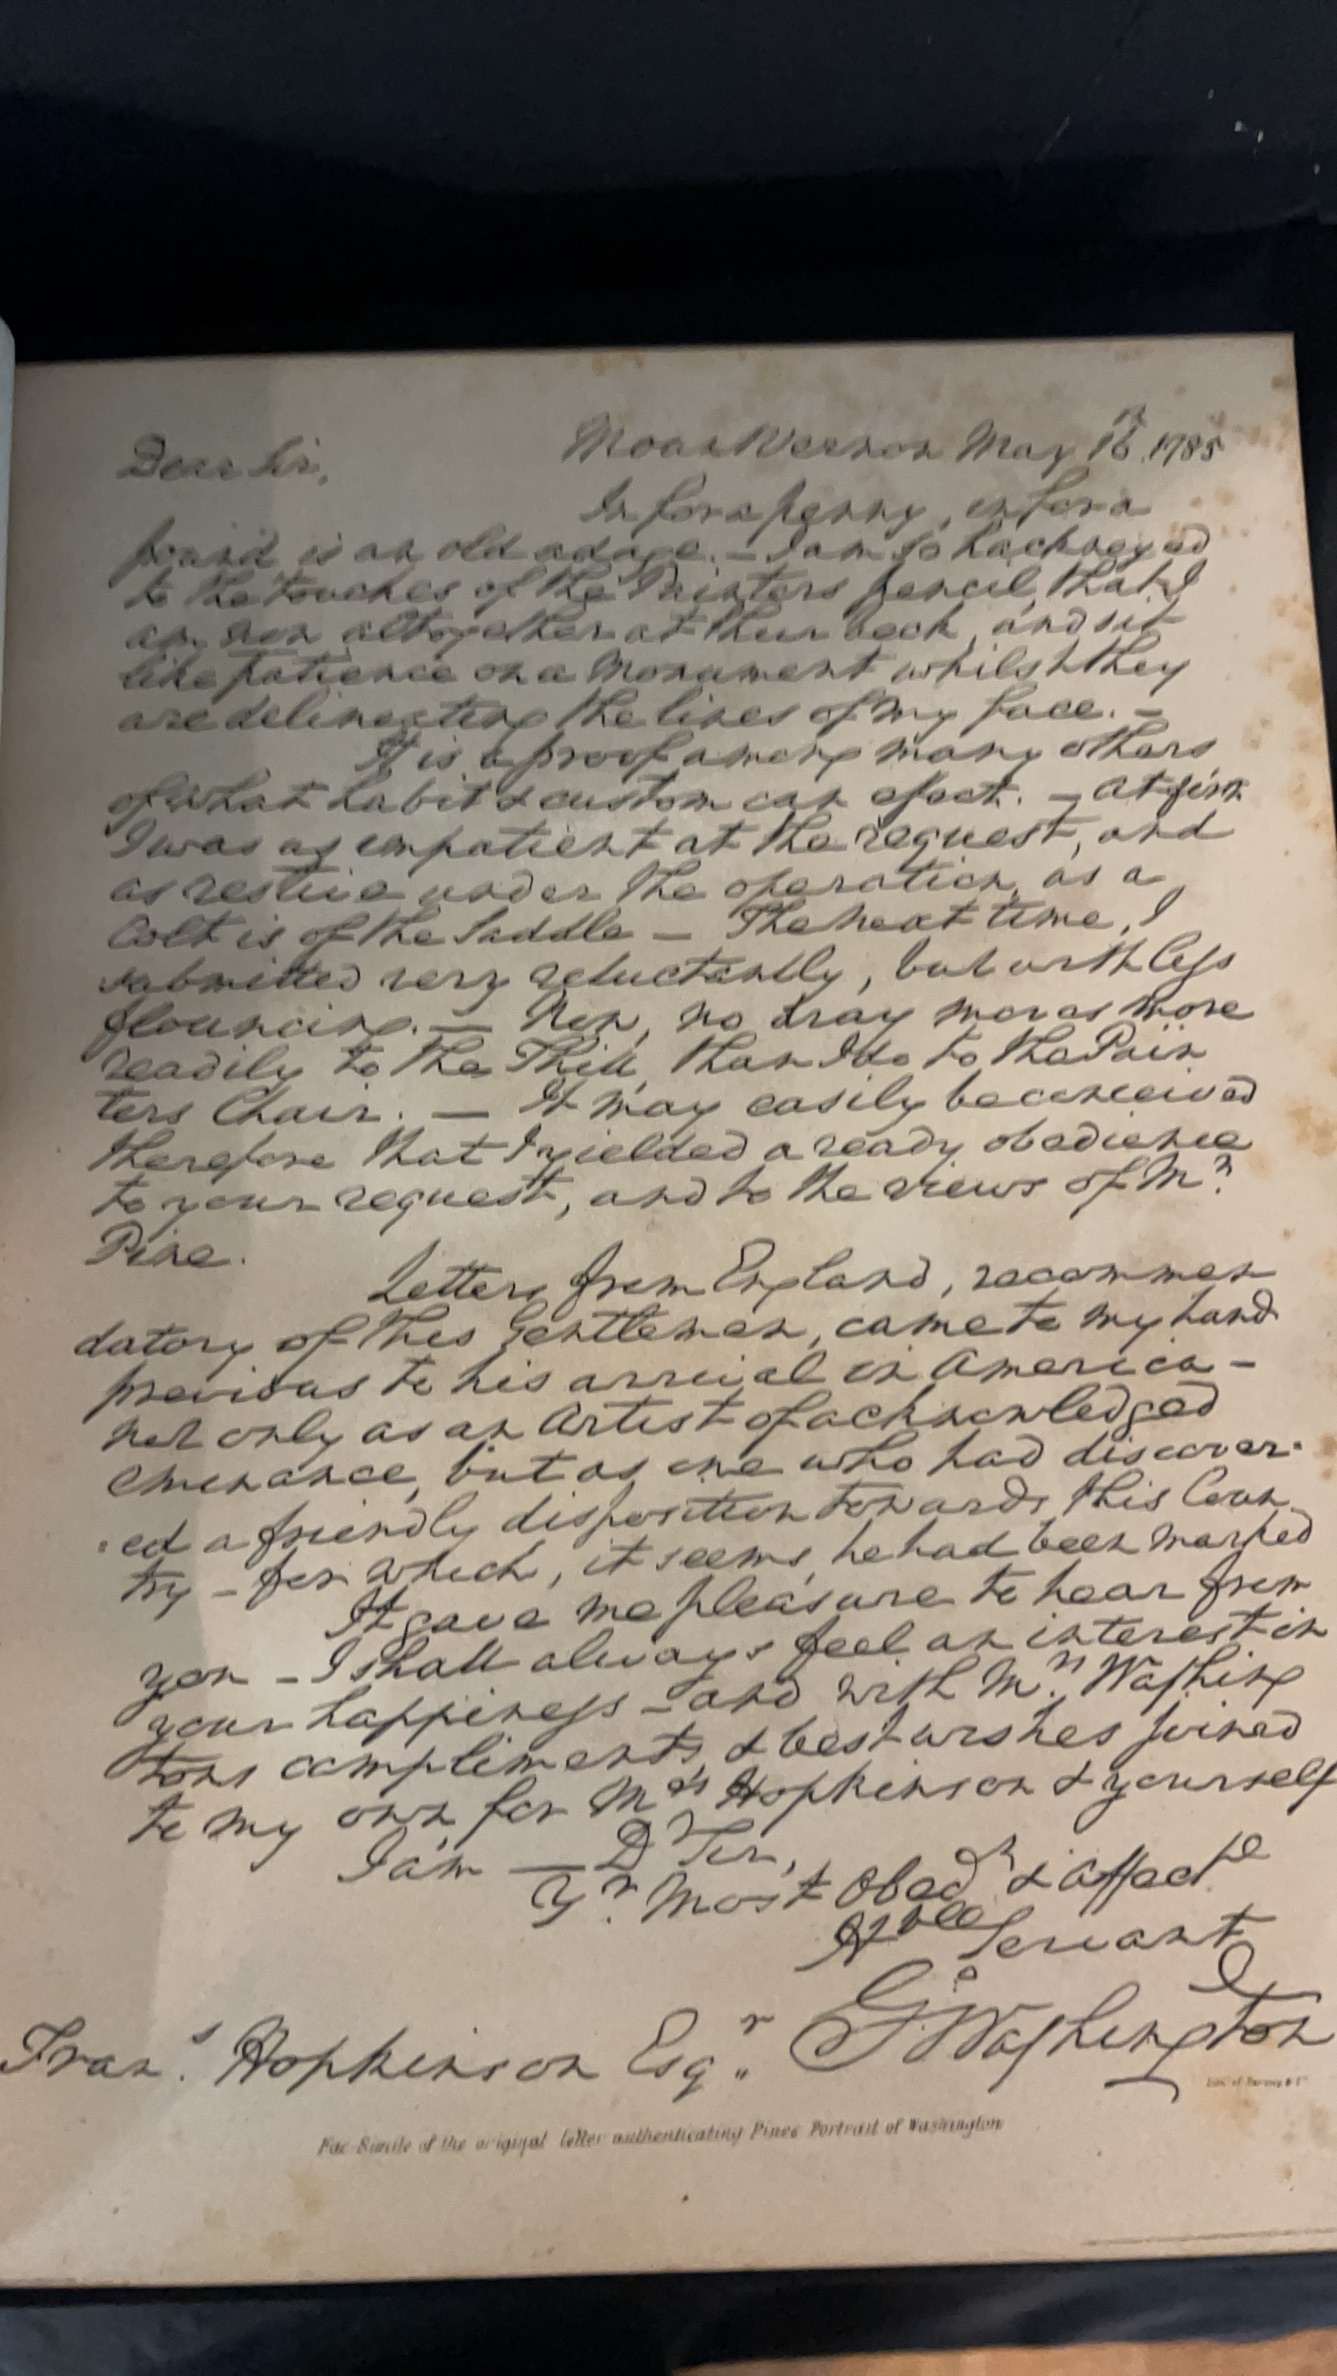 Mount Vernon May 16th. 1785
Dear Sir,
In for a penny, in for a
pound is an old adage. — I am so hackneyed
to the touches of the Painters pencil, that I
am now altogether at their beck, and sit
like patience on a Monument whilst they
are delineating the lines of my face. —
It is a proof among many others
of what habit & custom can effect. — At first
I was as impatient at the request, and
as restive under the operation, as a
Colt is of the Saddle — The next time, I
submitted very reluctantly, but with less
flouncing. — Now, no dray moves more
readily to the Thill, than I do to the Pain
ters Chair. — It may easily be conceived
therefore that I yielded a ready obedience
to your request, and to the views of Mr.
Pine.
Letters from England, recommen
datory of this Gentleman, came to my hand
previous to his arrival in America —
not only as an Artist of acknowledged
eminence, but as one who had discover-
-ed a friendly disposition towards this Coun
try — for which, it seems, he had been marked
It gave me pleasure to hear from
you — I shall always feel an interest in
your happiness — and with Mrs. Washing
tons compliments, & best wishes joined
to my own for Mrs. Hopkinson & yourself
I am — Dr Sir,
Yr. Most Obedt & affecte.
Hble Servant
Go Washington
Frans. Hopkinson Esqr.
Fac-Simile of the original letter authenticating Pines Portrait of Washington